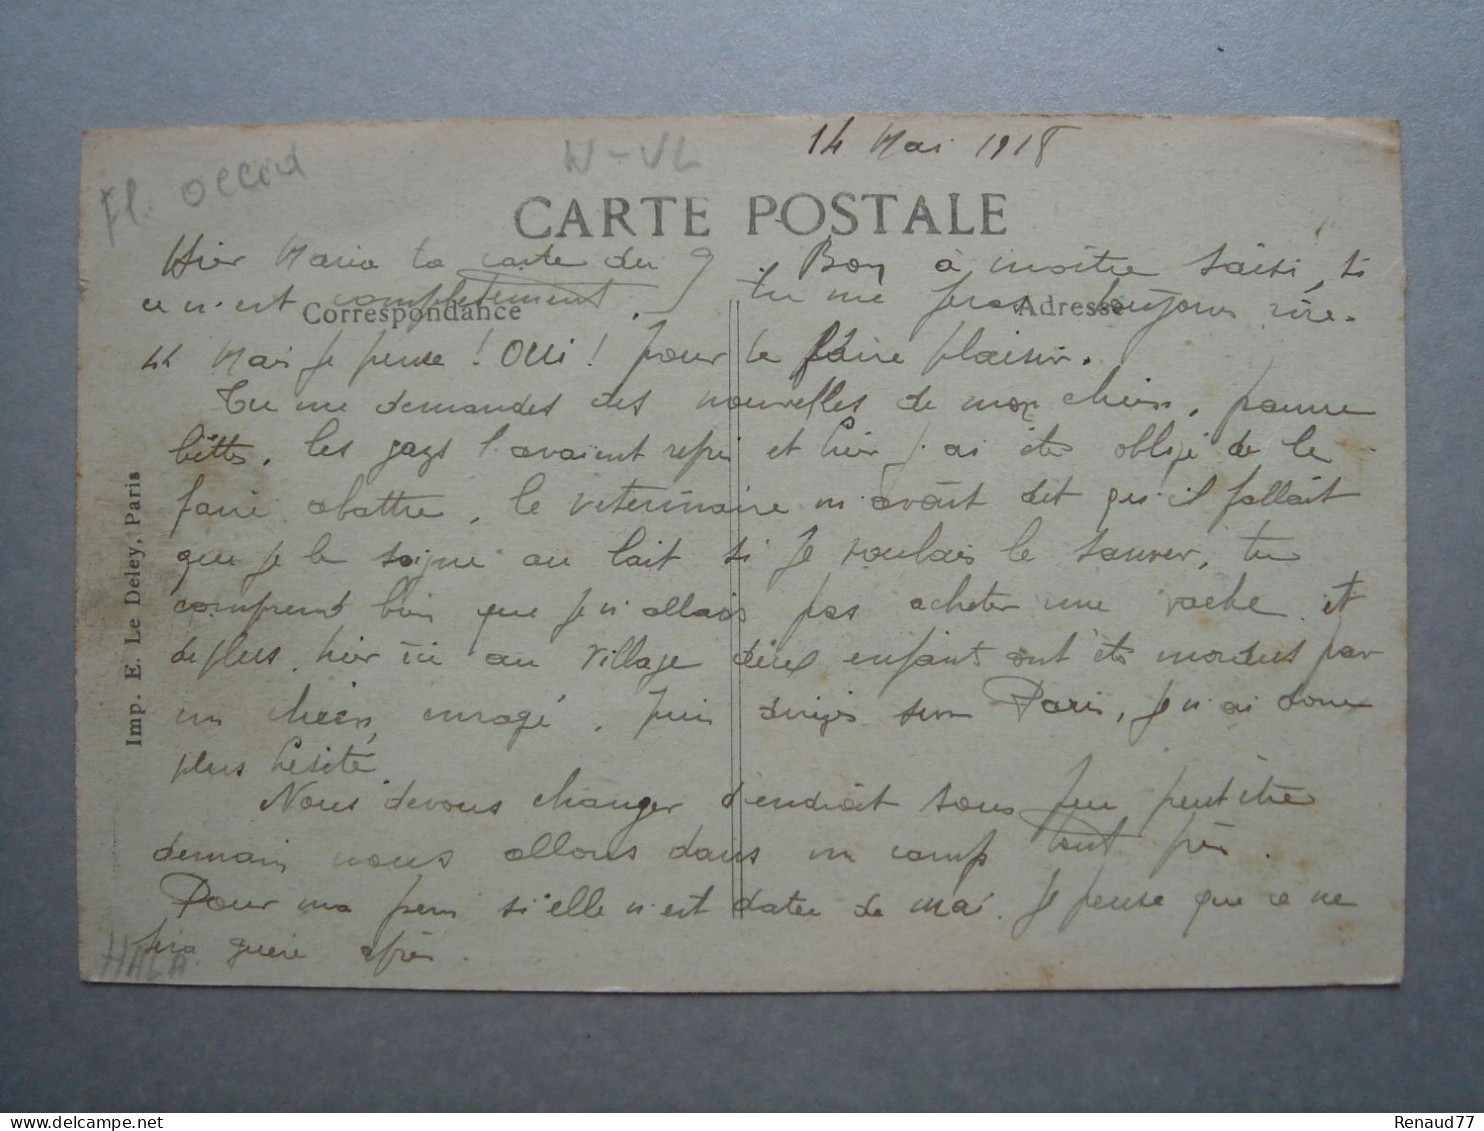 14 Mai 1918
Fl. occid
W-VL
CARTE POSTALE
Correspondance
Adresse
Hier Maria ta carte du 9. Bon à moitié saisi, si
ce n'est complètement, tu me feras toujours rire.
Mais je pense! Oui! pour te faire plaisir.
Tu me demandes des nouvelles de mon chien, pauvre
bette, les gazs l'avaient repri et hier j'ai été obligé de le
faire abattre, le veterinaire m'avait dit qu'il fallait
que je le soigne au lait si je voulais le sauver, tu
comprend bien que je n'allais pas acheter une vache et
de plus, hier ici au village deux enfants ont été mordus par
un chien enragé, puis dirigés sur Paris, je n'ai donc
plus hésité.
Nous devons changer d'endroit sous peu peut être
demain nous allons dans un camp tout près.
Pour ma perm si elle n'est datée de mai. Je pense que ce ne
sera guère après.
HALA
Imp. E. Le Deley, Paris
Renaud77